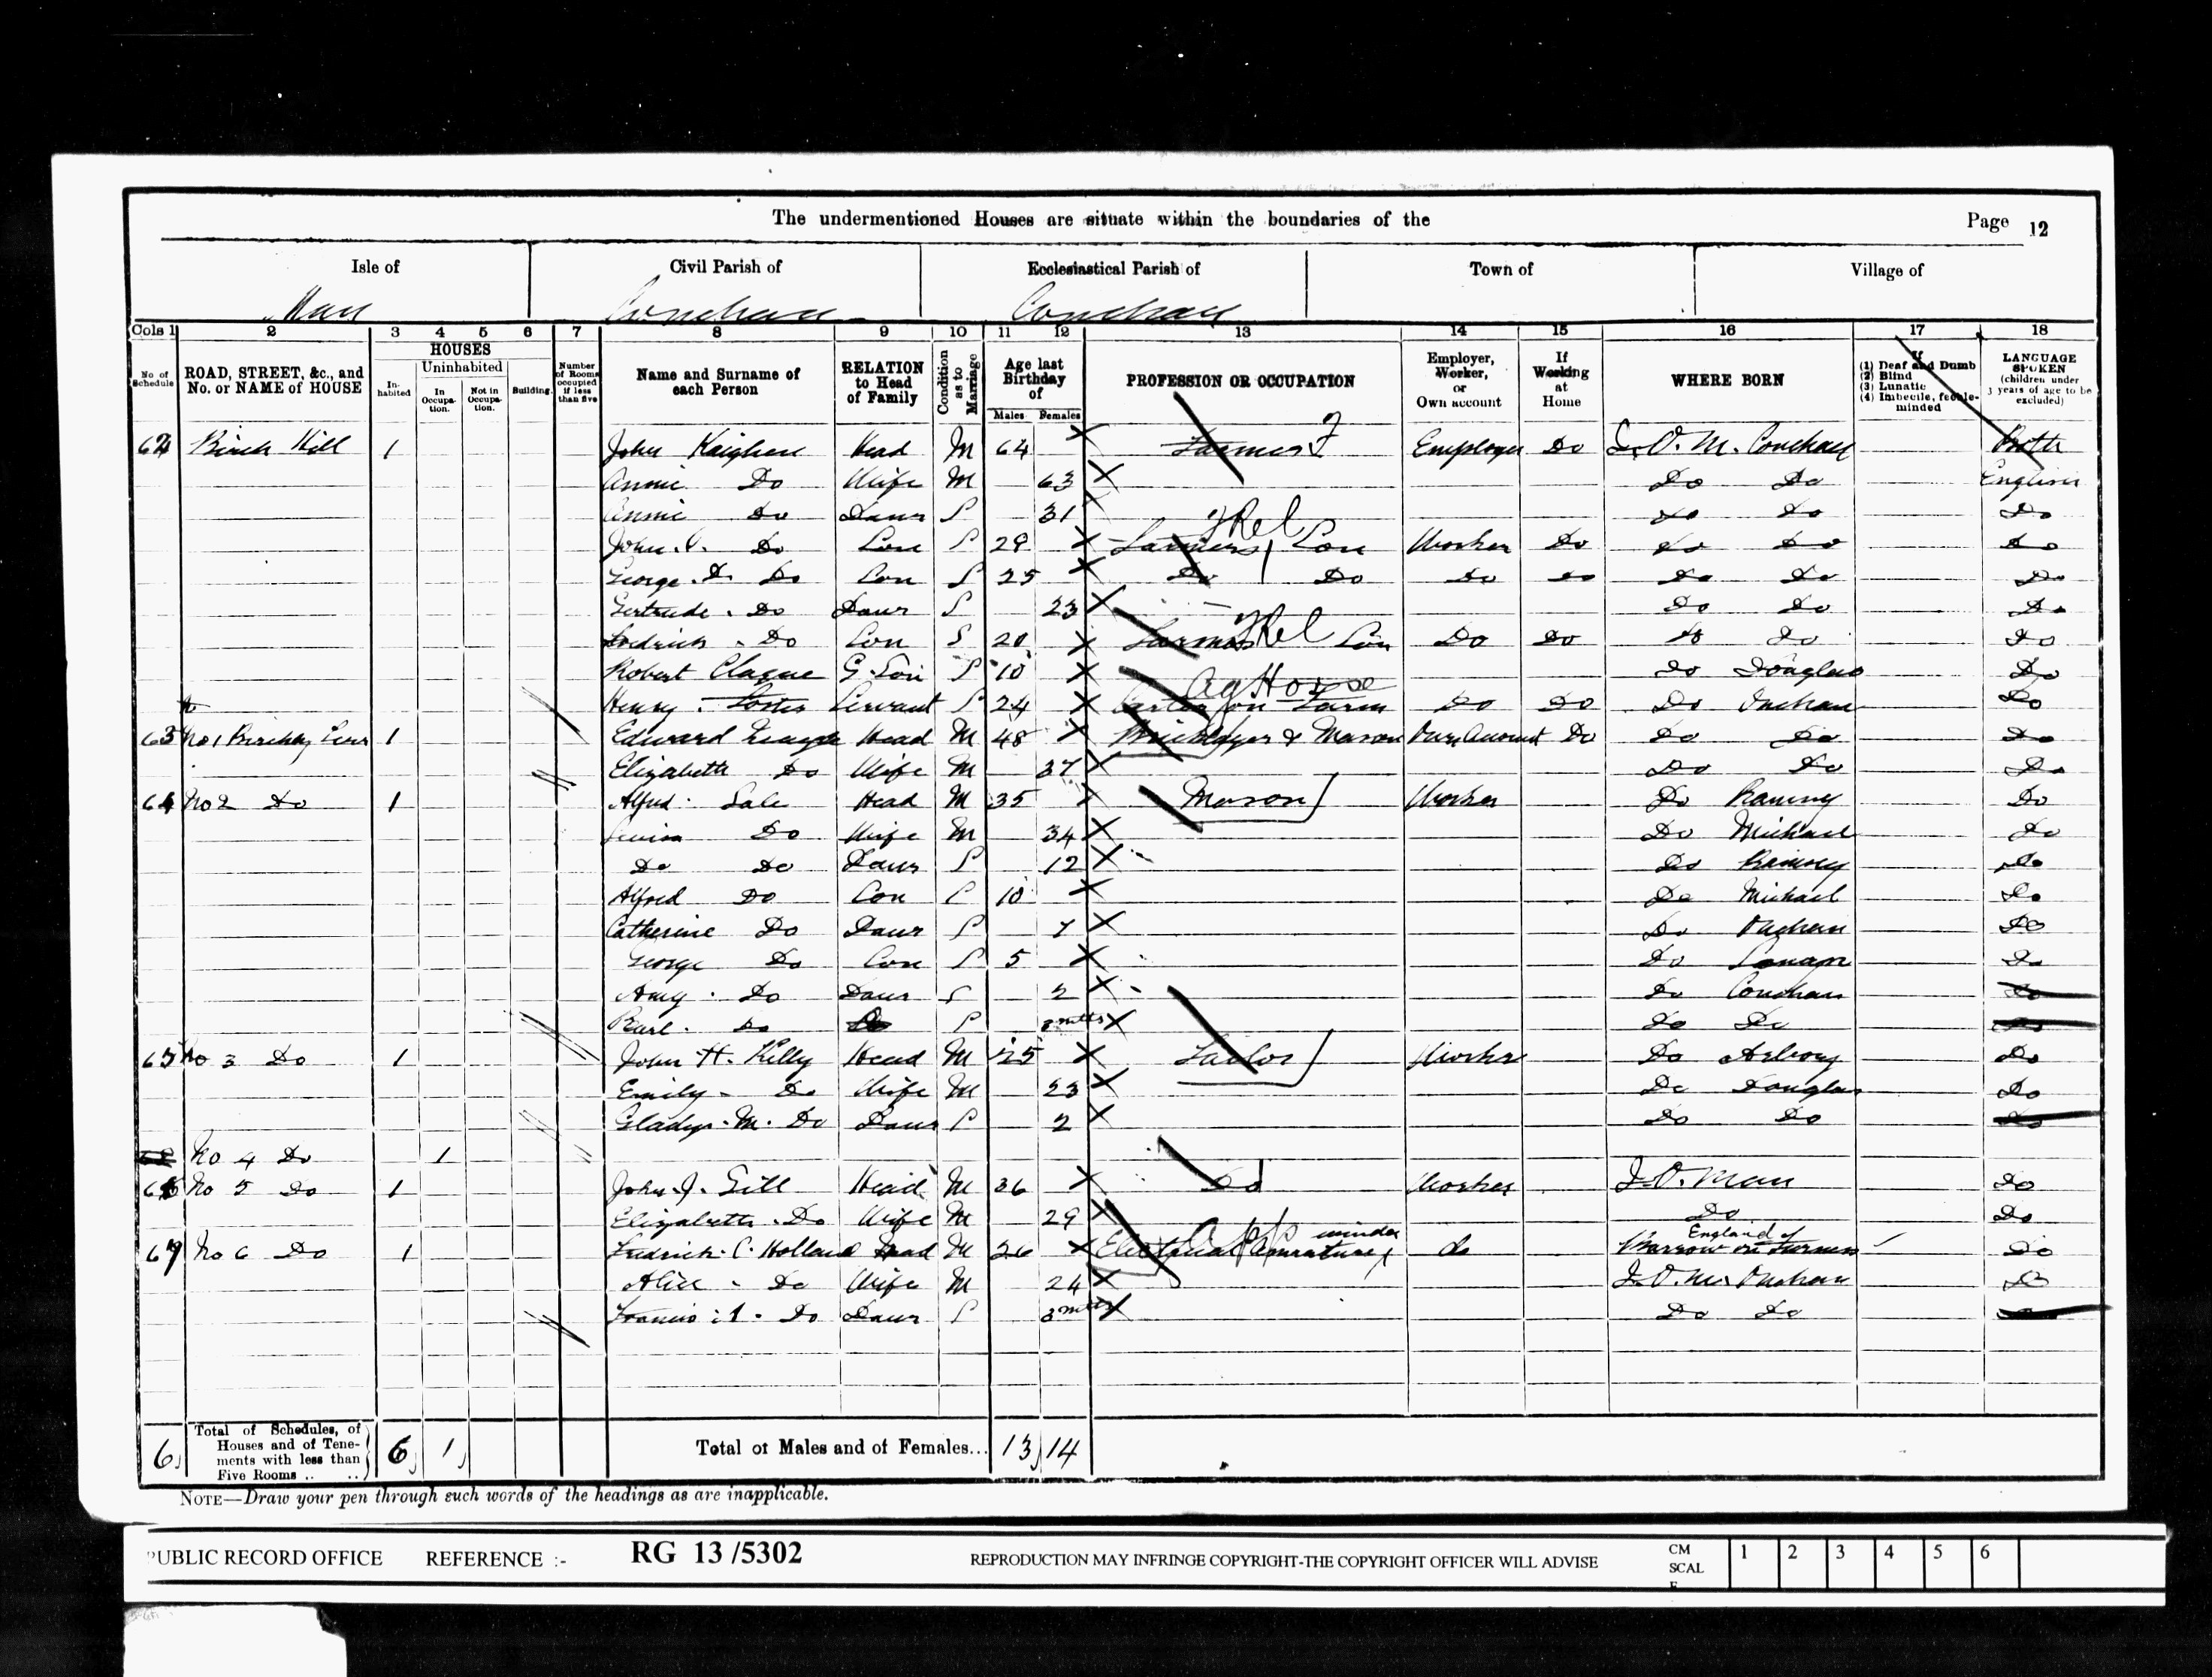 The undermentioned Houses are situate within the boundaries of the
Page 12
Isle of Civil Parish of Ecclesiastical Parish of Town of Village of
Man Conchan Conchan
Cols 1 2 3 4 5 6 7 8 9 10 11 12 13 14 15 16 17 18
No. of Schedule
ROAD, STREET, &c., and No. or NAME of HOUSE
HOUSES
In-habited
Uninhabited
In Occupa-tion.
Not in Occupa-tion.
Building.
Number of Rooms occupied if less than five
Name and Surname of each Person
RELATION to Head of Family
Condition as to Marriage
Age last Birthday of
Males Females
PROFESSION OR OCCUPATION
Employer, Worker, or Own account
If Working at Home
WHERE BORN
If
(1) Deaf and Dumb
(2) Blind
(3) Lunatic
(4) Imbecile, feeble-minded
LANGUAGE SPOKEN
(children under 3 years of age to be excluded)
62 Birch Hill 1 John Kaighen Head M 64 X Farmer F Employer Do I.O.M. Conchan Both
Annie Do Wife M 63 X Do Do English
Annie Do Daur S 31 X Do Do Do
John Do Son S 29 X Farmers Son Rel Worker Do Do Do Do
George D. Do Son S 25 X Do Do Do Do Do Do Do
Gertrude Do Daur S 23 X Do Do Do
Fredrick Do Son S 20 X Farmers Son Rel Do Do Do Do Do
Robert Clague G. Son S 10 X Do Douglas Do
Henry Foster Servant S 24 X Carter on Farm Ag Horse Do Do Do Onchan Do
63 No 1 1 Edward Head M 48 X Bricklayer & Mason Own Account Do Do Do Do
Elizabeth Do Wife M 37 X Do Do Do
64 No 2 Do 1 Alfred Sale Head M 35 X Mason Worker Do Ramsey Do
Do Wife M 34 X Do Michael Do
Do Do Daur S 12 X Do Ramsey Do
Alfred Do Son S 10 X Do Michael Do
Catherine Do Daur S 7 X Do Onchan Do
George Do Son S 5 X Do Do
Amy Do Daur S 2 X Do Conchan Do
Do Do S mths X Do Do Do
65 No 3 Do 1 John H. Kelly Head M 25 X Worker Do Arbory Do
Emily Do Wife M 23 X Do Douglas Do
Gladys M. Do Daur S 2 X Do Do Do
No 4 Do 1
66 No 5 Do 1 John J. Gill Head M 36 X Do Worker I.O. Man Do
Elizabeth Do Wife M 29 X Do Do
67 No 6 Do 1 Fredrick C. Holland Head M 26 X Electrical minder App do England Barrow in Furness Do
Alice Do Wife M 24 X I.O.M. Onchan Do
Do Daur S 3 mths X Do Do
6 Total of Schedules, of Houses and of Tene-ments with less than Five Rooms .. .. 6 1 Total of Males and of Females... 13 14
NOTE—Draw your pen through such words of the headings as are inapplicable.
PUBLIC RECORD OFFICE REFERENCE :- RG 13/5302 REPRODUCTION MAY INFRINGE COPYRIGHT-THE COPYRIGHT OFFICER WILL ADVISE CM SCAL 1 2 3 4 5 6